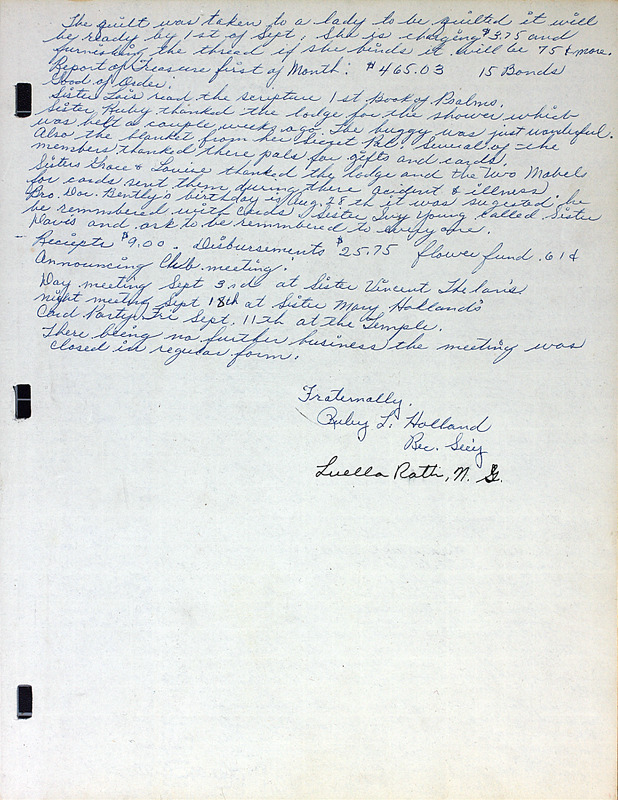 The quilt was taken to a lady to be quilted it will
be ready by 1st of Sept; She is charging $3.75 and
furnishing the thread if she binds it will be 75¢ more.
Report of Treasure first of Month: $465.03 15 Bonds
Good of Order:
Sister Lois read the scripture 1st Book of Psalms.
Sister Ruby thanked the lodge for the shower which
was held a couple weeks ago. The buggy was just wonderful.
Also the blanket from her Secret Pal. Several of the
members thanked there pals for gifts and cards.
Sisters Grace & Louise thanked the lodge and the two Mabels
for cards sent them during there accident & illness
Bro. Doc. Bently's birthday is Aug. 28th it was sugested he
be remmbered with cards. Sister Ivy Young called Sister
Davis and ask to be remmbered to everyone.
Reciepts $9.00. Disbursements $25.75 flower fund .61¢
Announcing Club meeting:
Day meeting Sept 3rd at Sister Vincent
night meeting Sept 18th at Sister Mary Holland's
Card Party Fri Sept. 11th at the Temple.
There being no further business the meeting was
closed in regular form.
Fraternally,
Ruby L. Holland
Rec. Sec'y
Luella Rath, N. G.